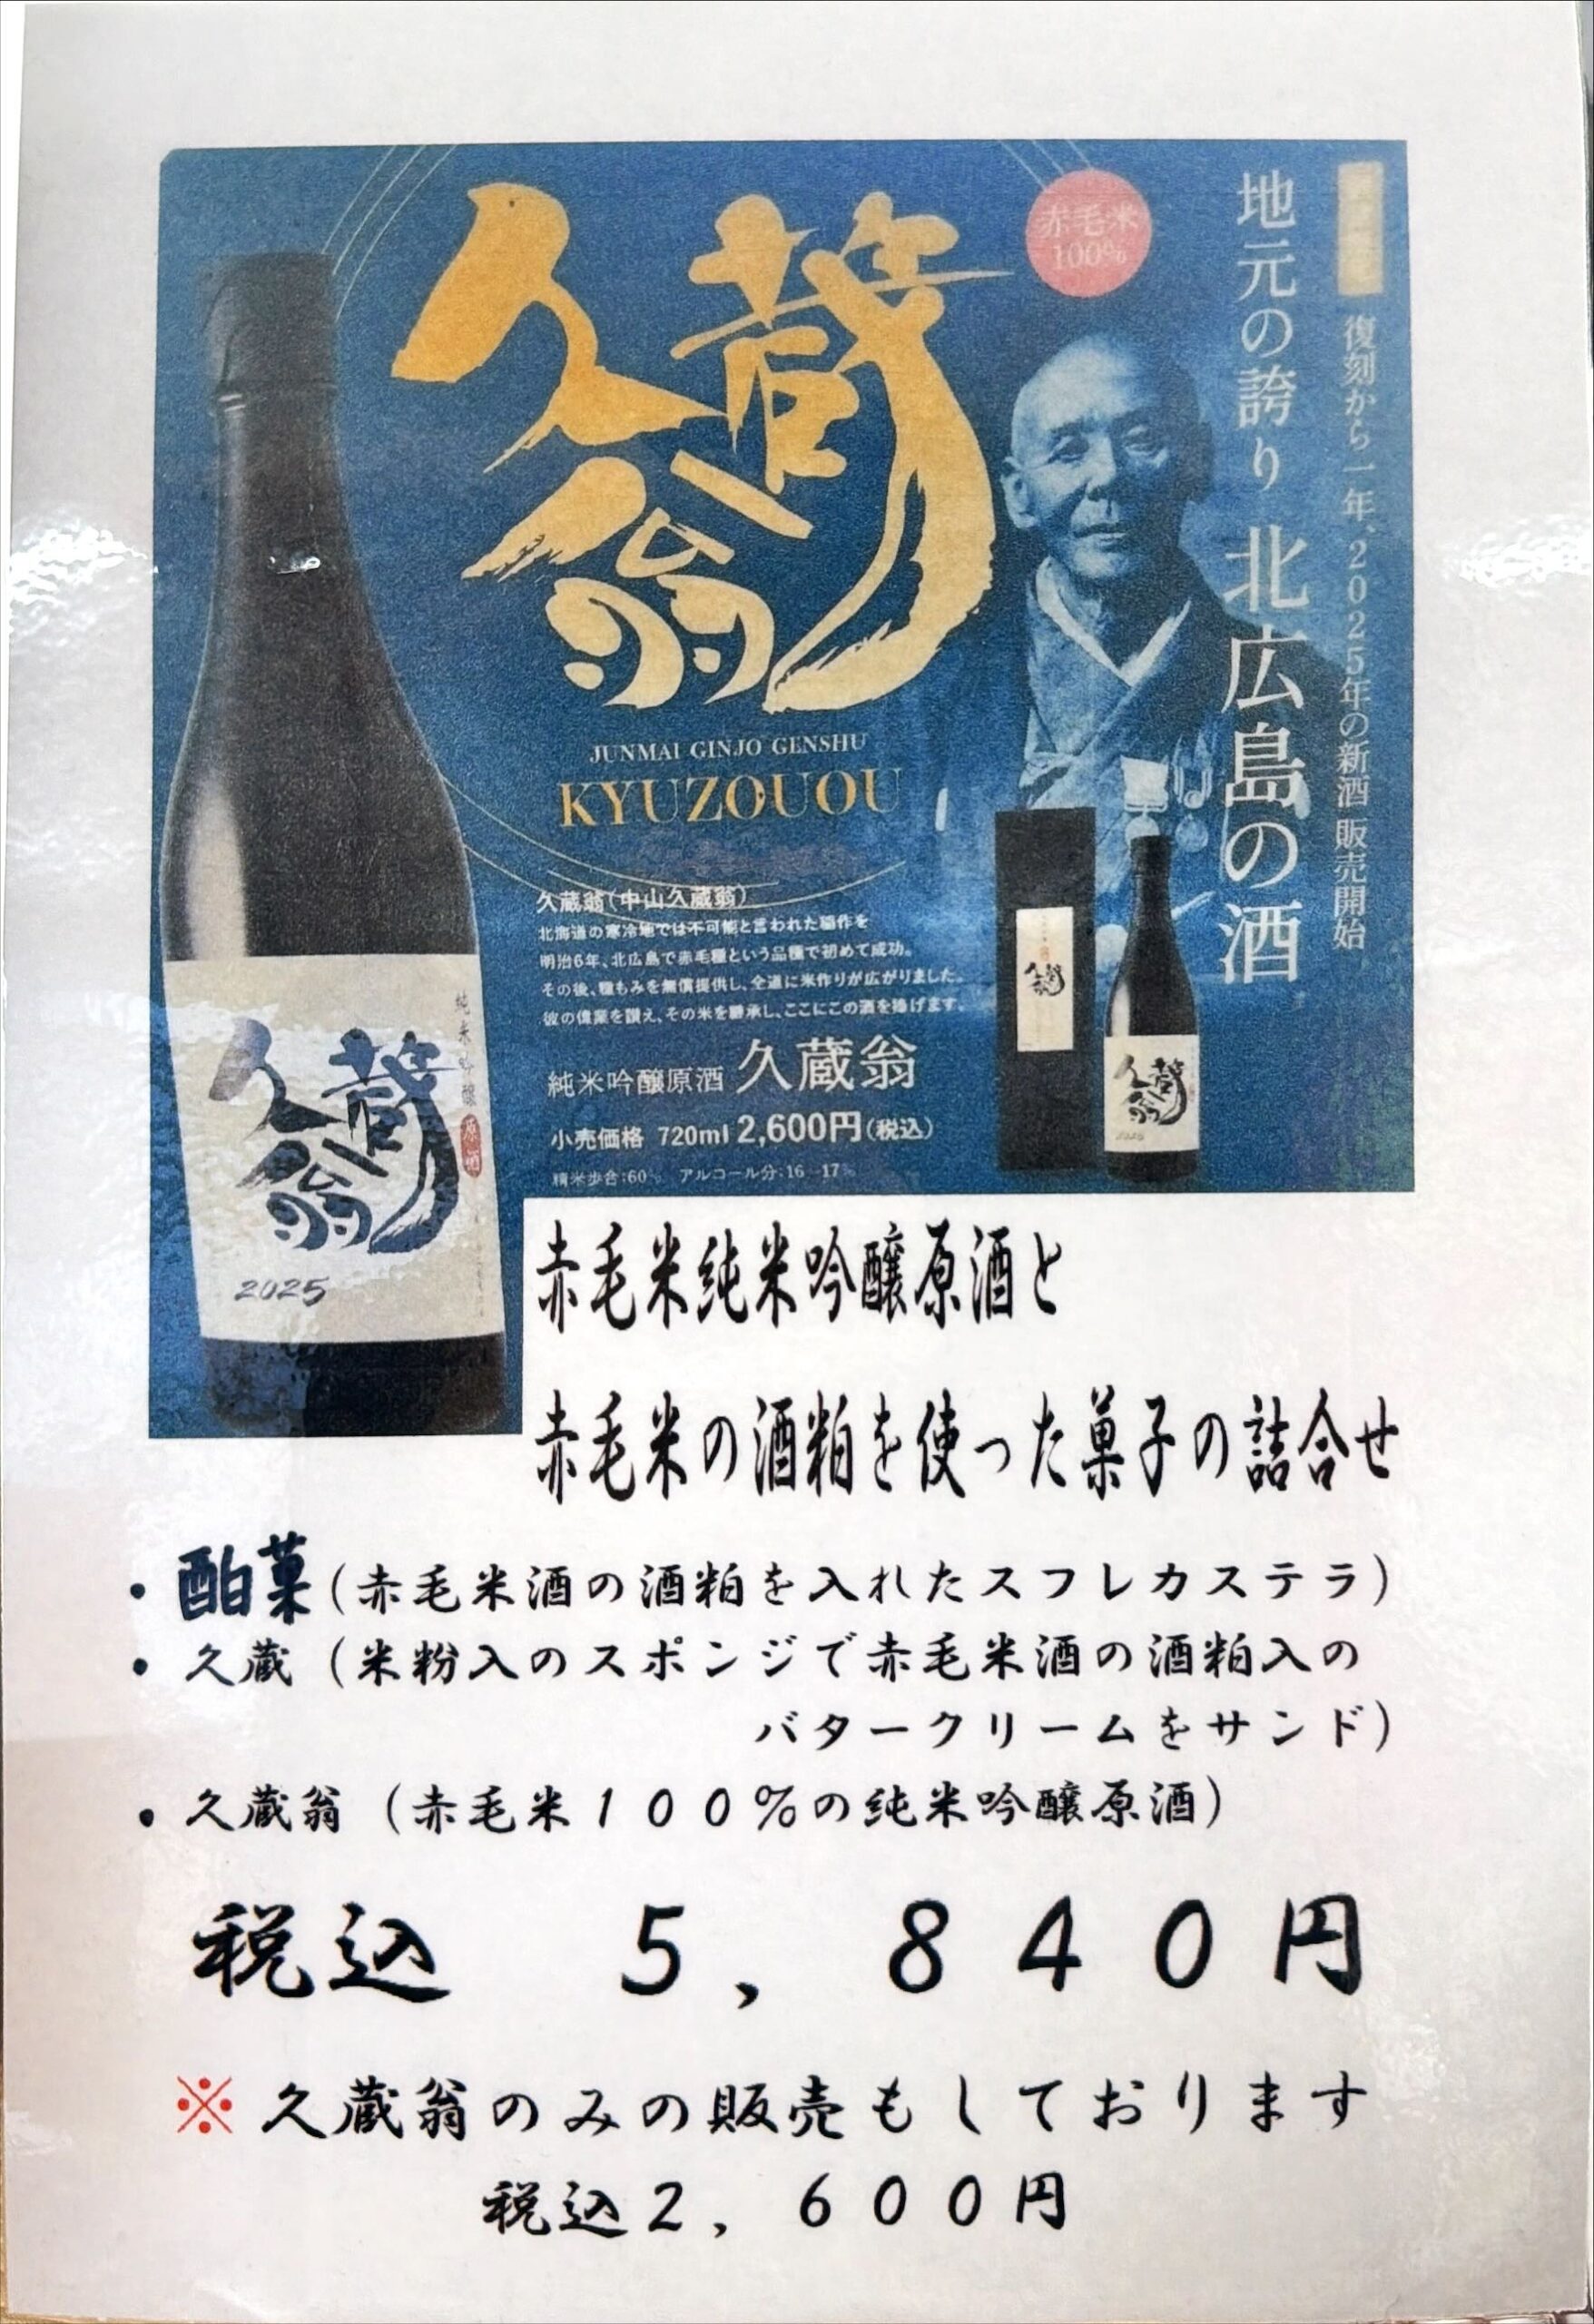 復刻から一年、2025年の新酒 販売開始
地元の誇り 北広島の酒
赤毛米
100%
久蔵翁
JUNMAI GINJO GENSHU
KYUZOUOU
久蔵翁(中山久蔵翁)
北海道の寒冷地では不可能と言われた稲作を
明治6年、北広島で赤毛種という品種で初めて成功。
その後、種もみを無償提供し、全道に米作りが広がりました。
彼の偉業を讃え、その米を継承し、ここにこの酒を捧げます。
純米吟醸原酒 久蔵翁
小売価格 720ml 2,600円(税込)
精米歩合:60% アルコール分:16 17%
純米吟醸
原酒
久蔵翁
2025
久蔵翁
久蔵翁
2025
赤毛米純米吟醸原酒と
赤毛米の酒粕を使った菓子の詰合せ
・酯菓(赤毛米酒の酒粕を入れたスフレカステラ)
・久蔵 (米粉入のスポンジで赤毛米酒の酒粕入の
バタークリームをサンド)
・久蔵翁 (赤毛米100%の純米吟醸原酒)
税込 5,840円
※久蔵翁のみの販売もしております
税込2,600円